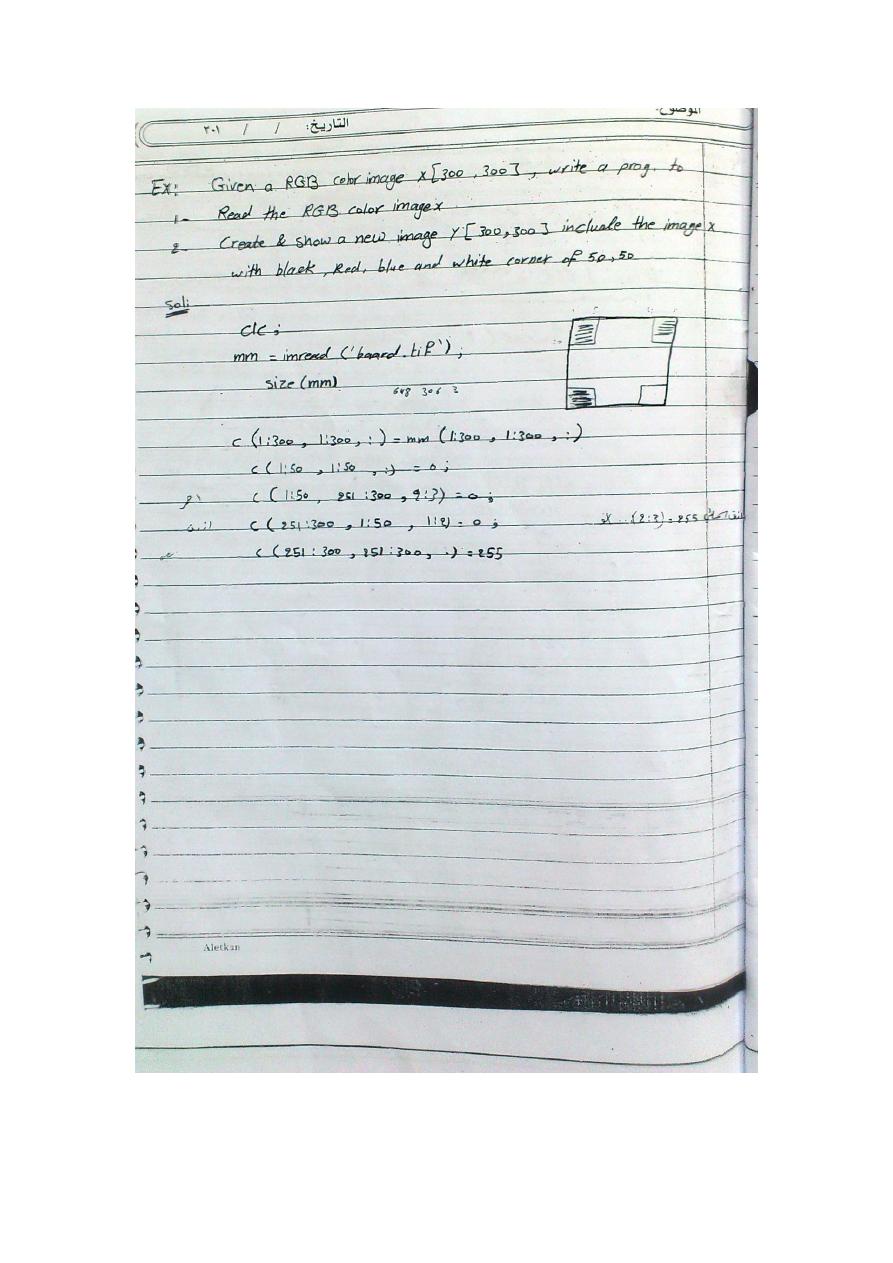 الموضوع:
التاريخ: / / ٢٠١
Ex: Given a RGB color image x[300,300], write a prog. to
1- Read the RGB color image x
2- Create & show a new image Y[300,300] include the image x
with black, Red, blue and white corner of 50,50
Sol:
clc;
mm = imread ('board.tif');
size (mm)
648 306 3
c (1:300, 1:300, :) = mm (1:300, 1:300, :)
c (1:50, 1:50, :) = 0;
c (1:50, 251:300, 2:3) = 0;
c (251:300, 1:50, 1:2) = 0; (2:3) = 255
c (251:300, 251:300, :) = 255
Aletkan